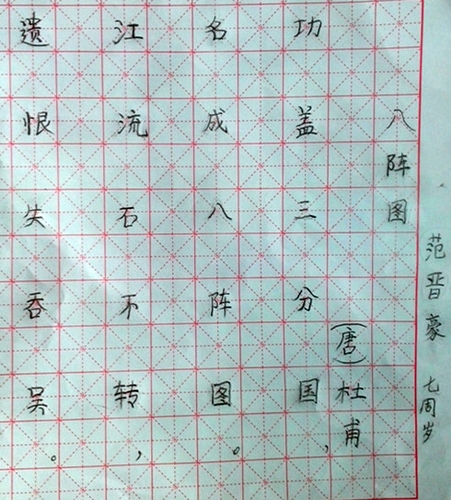 范晋豪 七周岁
八阵图
(唐)杜甫
功盖三分国,
名成八阵图。
江流石不转,
遗恨失吞吴。